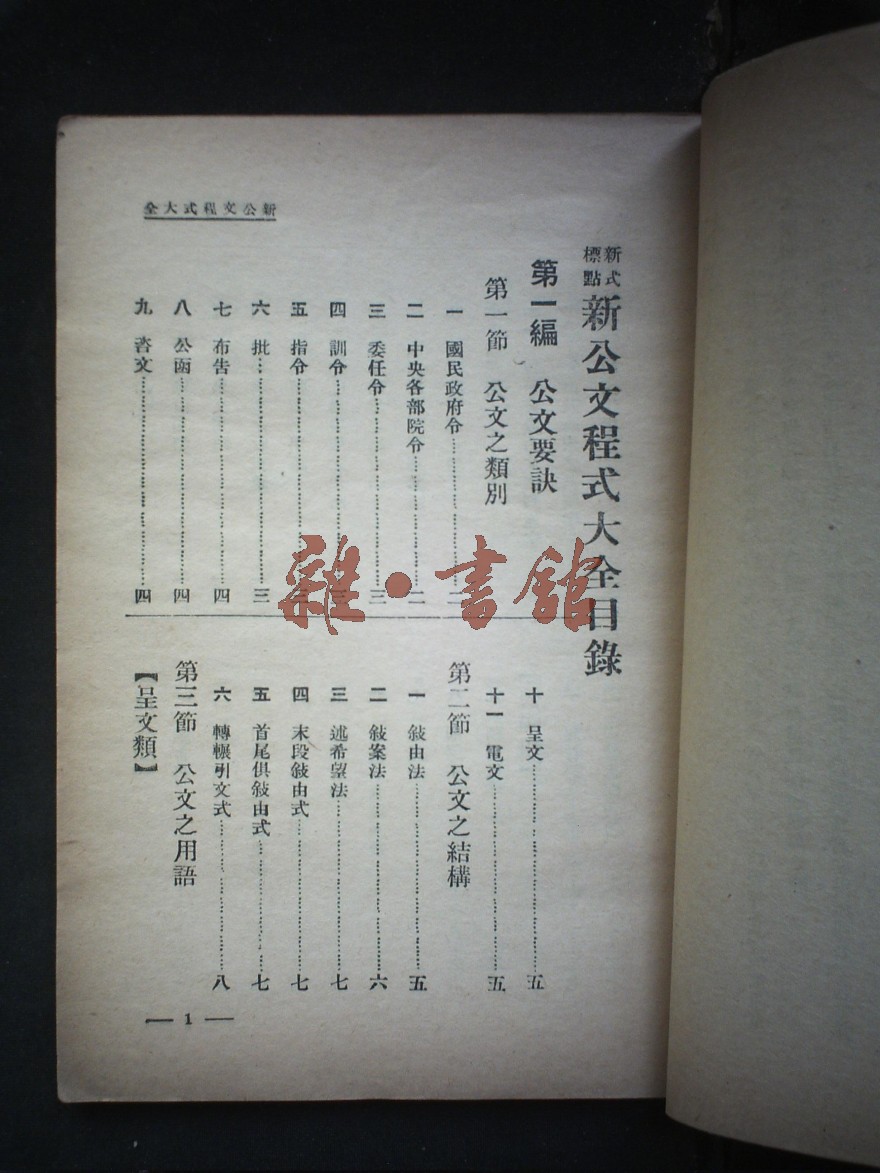 新公文程式大全
新式標點 新公文程式大全目錄
第一編　公文要訣
第一節　公文之類別
一　國民政府令……
二　中央各部院令……二
三　委任令……三
四　訓令……
五　指令……
六　批……三
七　布告……四
八　公函……四
九　咨文……四
十　呈文……五
十一　電文……五
第二節　公文之結構
一　敍由法……五
二　敍案法……六
三　述希望法……七
四　末段敍由式……七
五　首尾俱敍由式……七
六　轉輾引文式……八
第三節　公文之用語
【呈文類】
— 1 —
雜·書館